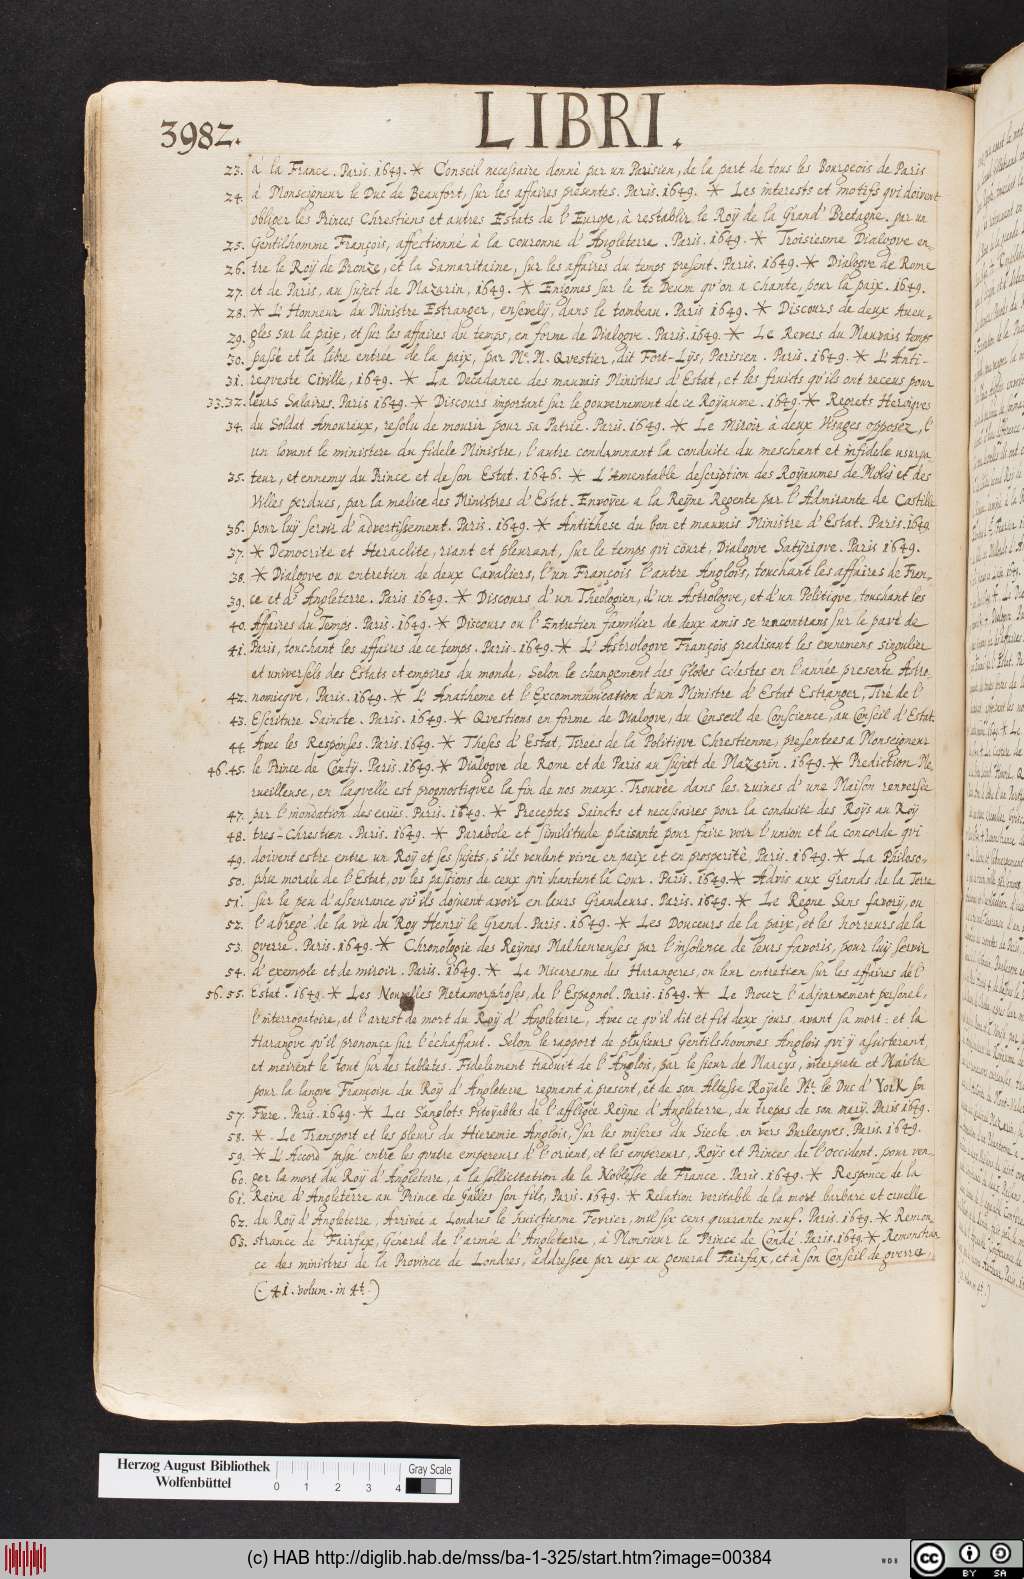 3982.
LIBRI.
23. à la France. Paris. 1649. * Conseil necessaire donné par un Parisien, de la part de tous les Bourgeois de Paris
24. à Monseigneur le Duc de Beaufort, sur les affaires presentes. Paris. 1649. * Les interests et motifs qui doivent
obliger les Princes Chrestiens et autres Estats de l'Europe, à restablir le Roÿ de la Grand' Bretagne. par un
25. Gentilhomme François, affectionné à la couronne d'Angleterre. Paris. 1649. * Troisiesme Dialogve en-
26. tre le Roÿ de Bronze, et la Samaritaine, sur les affaires du temps present. Paris. 1649. * Dialogve de Rome
27. et de Paris, au sujest de Mazarin, 1649. * Enigmes sur le te Deum qu'on a chante, pour la paix. 1649.
28. * L'Honneur du Ministre Estranger, ensevelÿ, dans le tombeau. Paris 1649. * Discours de deux Aueu-
29. gles sur la paix, et sur les affaires du temps, en forme de Dialogve. Paris. 1649. * Le Revers du Mauvais temps
30. passé et la libre entrée de la paix, par Me. N. Qvestier, dit Fort-Lÿs, Parisien. Paris. 1649. * L'Anti-
31. reqveste Civille, 1649. * La Decadance des mauvais Ministres d'Estat, et les fruicts qu'ils ont receus pour
33.32. leurs Salaires. Paris 1649. * Discours important sur le gouvernement de ce Royaume. 1649. * Regrets Heroiqves
34. du Soldat Amoureux, resolu de mourir pour sa Patrie. Paris. 1649. * Le Miroir à deux Visages opposez, l'
un lovant le ministere du fidele Ministre, l'autre condamnant la conduite du meschant et infidele usurpa-
35. teur, et ennemy du Prince et de son Estat. 1646. * L'Amentable description des Roÿaumes de Nolis et des
Villes perdues, par la malice des Ministres d'Estat. Envoÿee a la Reÿne Regente par l'Admirante de Castille
36. pour luÿ servir d'advertissement. Paris. 1649. * Antithese du bon et mauvais Ministre d'Estat. Paris. 1649
37. * Democrite et Heraclite, riant et pleurant, sur le temps qui court, Dialogve Satÿriqve. Paris 1649.
38. * Dialogve ou entretien de deux Cavaliers, l'un François l'autre Anglois, touchant les affaires de Fran-
39. ce et d'Angleterre. Paris 1649. * Discours d'un Theologien, d'un Astrologve, et d'un Politiqve, touchant les
40. Affaires du Temps. Paris. 1649. * Discours ou l'Entretien familier de deux amis se rencontrans sur le pavé de
41. Paris, touchant les affaires de ce temps. Paris. 1649. * L'Astrologve François predisant les evenemens singulier
et universels des Estats et empires du monde, Selon le changement des Globes Celestes en l'année presente Astro-
42. nomicqve, Paris. 1649. * L'Anatheme et l'Excommunication d'un Ministre d'Estat Estranger, Tiré de l'
43. Escriture Saincte. Paris. 1649. * Qvestions en forme de Dialogve, du Conseil de Conscience, au Conseil d'Estat
44. Avec les Responses. Paris. 1649. * Theses d'Estat, Tirees de la Politiqve Chrestienne, presentees a Monseigneur
46.45. le Prince de Contÿ. Paris. 1649. * Dialogve de Rome et de Paris au sujest de Mazarin. 1649. * Prediction Me-
rveilleuse, en laqvelle est prognostiqvee la fin de nos maux. Trouvée dans les ruines d'une Maison renversée
47. par l'inondation des eaües. Paris. 1649. * Preceptes Saincts et necessaires pour la conduite des Roÿs au Roÿ
48. tres-Chrestien. Paris. 1649. * Parabole et similitude plaisante pour faire voir l'union et la concorde qui
49. doivent estre entre un Roÿ et ses sujets, s'ils veulent vivre en paix et en prosperité, Paris. 1649. * La Philoso-
50. phie morale de l'Estat, ov les passions de ceux qui hantent la Cour. Paris. 1649. * Advis aux Grands de la Terre
51. sur le peu d'asseurance qu'ils doivent avoir en leurs Grandeurs. Paris. 1649. * Le Regne Sans favory, ou
52. l'abregé de la vie du Roy Henrÿ le Grand. Paris. 1649. * Les Douceurs de la paix, et les horreurs de la
53. gverre. Paris. 1649. * Chronologie des Reÿnes Malheureuses par l'insolence de leurs favoris, pour luÿ servir
54. d'exemple et de miroir. Paris. 1649. * La Micaresme des Harangeres, ou leur entretien sur les affaires de l'
56.55. Estat. 1649. * Les Nouvelles Metamorphoses, de l'Espagnol. Paris. 1649. * Le Procez l'adjournement personel,
l'interrogatoire, et l'arrest de mort du Roÿ d'Angleterre, Avec ce qu'il dit et fit deux jours avant sa mort: et la
Harangve qu'il prononça sur l'echaffaut. Selon le rapport de plusieurs Gentilshommes Anglois qui ÿ assisterent,
et meirent le tout sur des tabletes. Fidelement traduit de l'Anglois, par le sieur de Marcys, interprete et Maistre
pour la langve Françoise du Roÿ d'Angleterre regnant à present, et de son Altesse Royale Mr. le Duc d'York sn
57. Frere. Paris. 1649. * Les Sanglots Pitoÿables de l'affligée Reÿne d'Angleterre, du trepas de son marÿ. Paris 1649.
58. *. Le Transport et les pleurs du Hieremie Anglois, sur les miseres du Siecle. en vers Burlesqves. Paris. 1649.
59. * L'Accord passé entre les qvatre empereurs de l'orient, et les empereurs, Roÿs et Princes de l'occident. pour ven-
60. ger la mort du Roÿ d'Angleterre, a la sollicitation de la Noblesse de France. Paris. 1649. * Responce de la
61. Reine d'Angleterre au Prince de Galles son fils, Paris. 1649. * Relation veritable de la mort barbare et cruelle
62. du Roÿ d'Angleterre, Arrivée a Londres le huictiesme Fevrier, mil six cens qvarante neuf. Paris. 1649. * Remon-
63. strance de Fairfax, General de l'armée d'Angleterre, à Monsieur le Prince de Condé. Paris. 1649. * Remonstran
ce des ministres de la Province de Londres, addressee par eux au general Fairfax, et à son Conseil de gverre,
(. 41. volum. in 4t.)
Herzog August Bibliothek
Wolfenbüttel
0 1 2 3 4
Gray Scale
(c) HAB http://diglib.hab.de/mss/ba-1-325/start.htm?image=00384
WDB
cc
BY SA